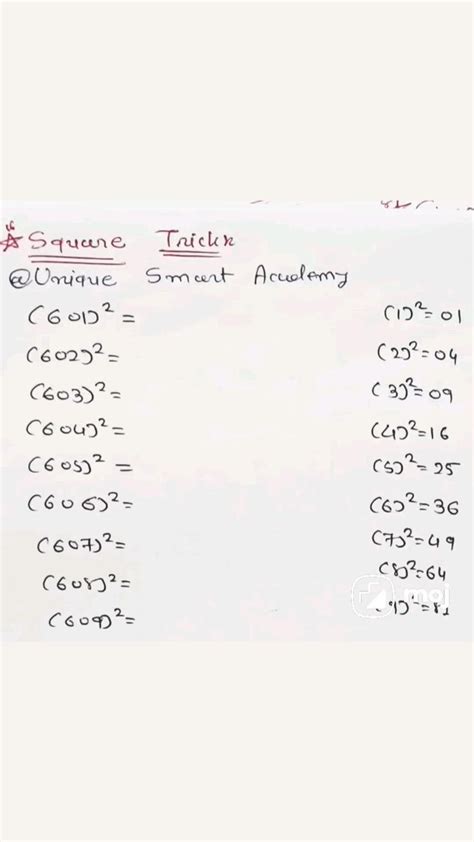 Square Trick
@Unique Smart Academy
(601)²= (1)²=01
(602)²= (2)²=04
(603)²= (3)²=09
(604)²= (4)²=16
(605)²= (5)²=25
(606)²= (6)²=36
(607)²= (7)²=49
(608)²= (8)²=64
(609)²= (9)²=81
moj